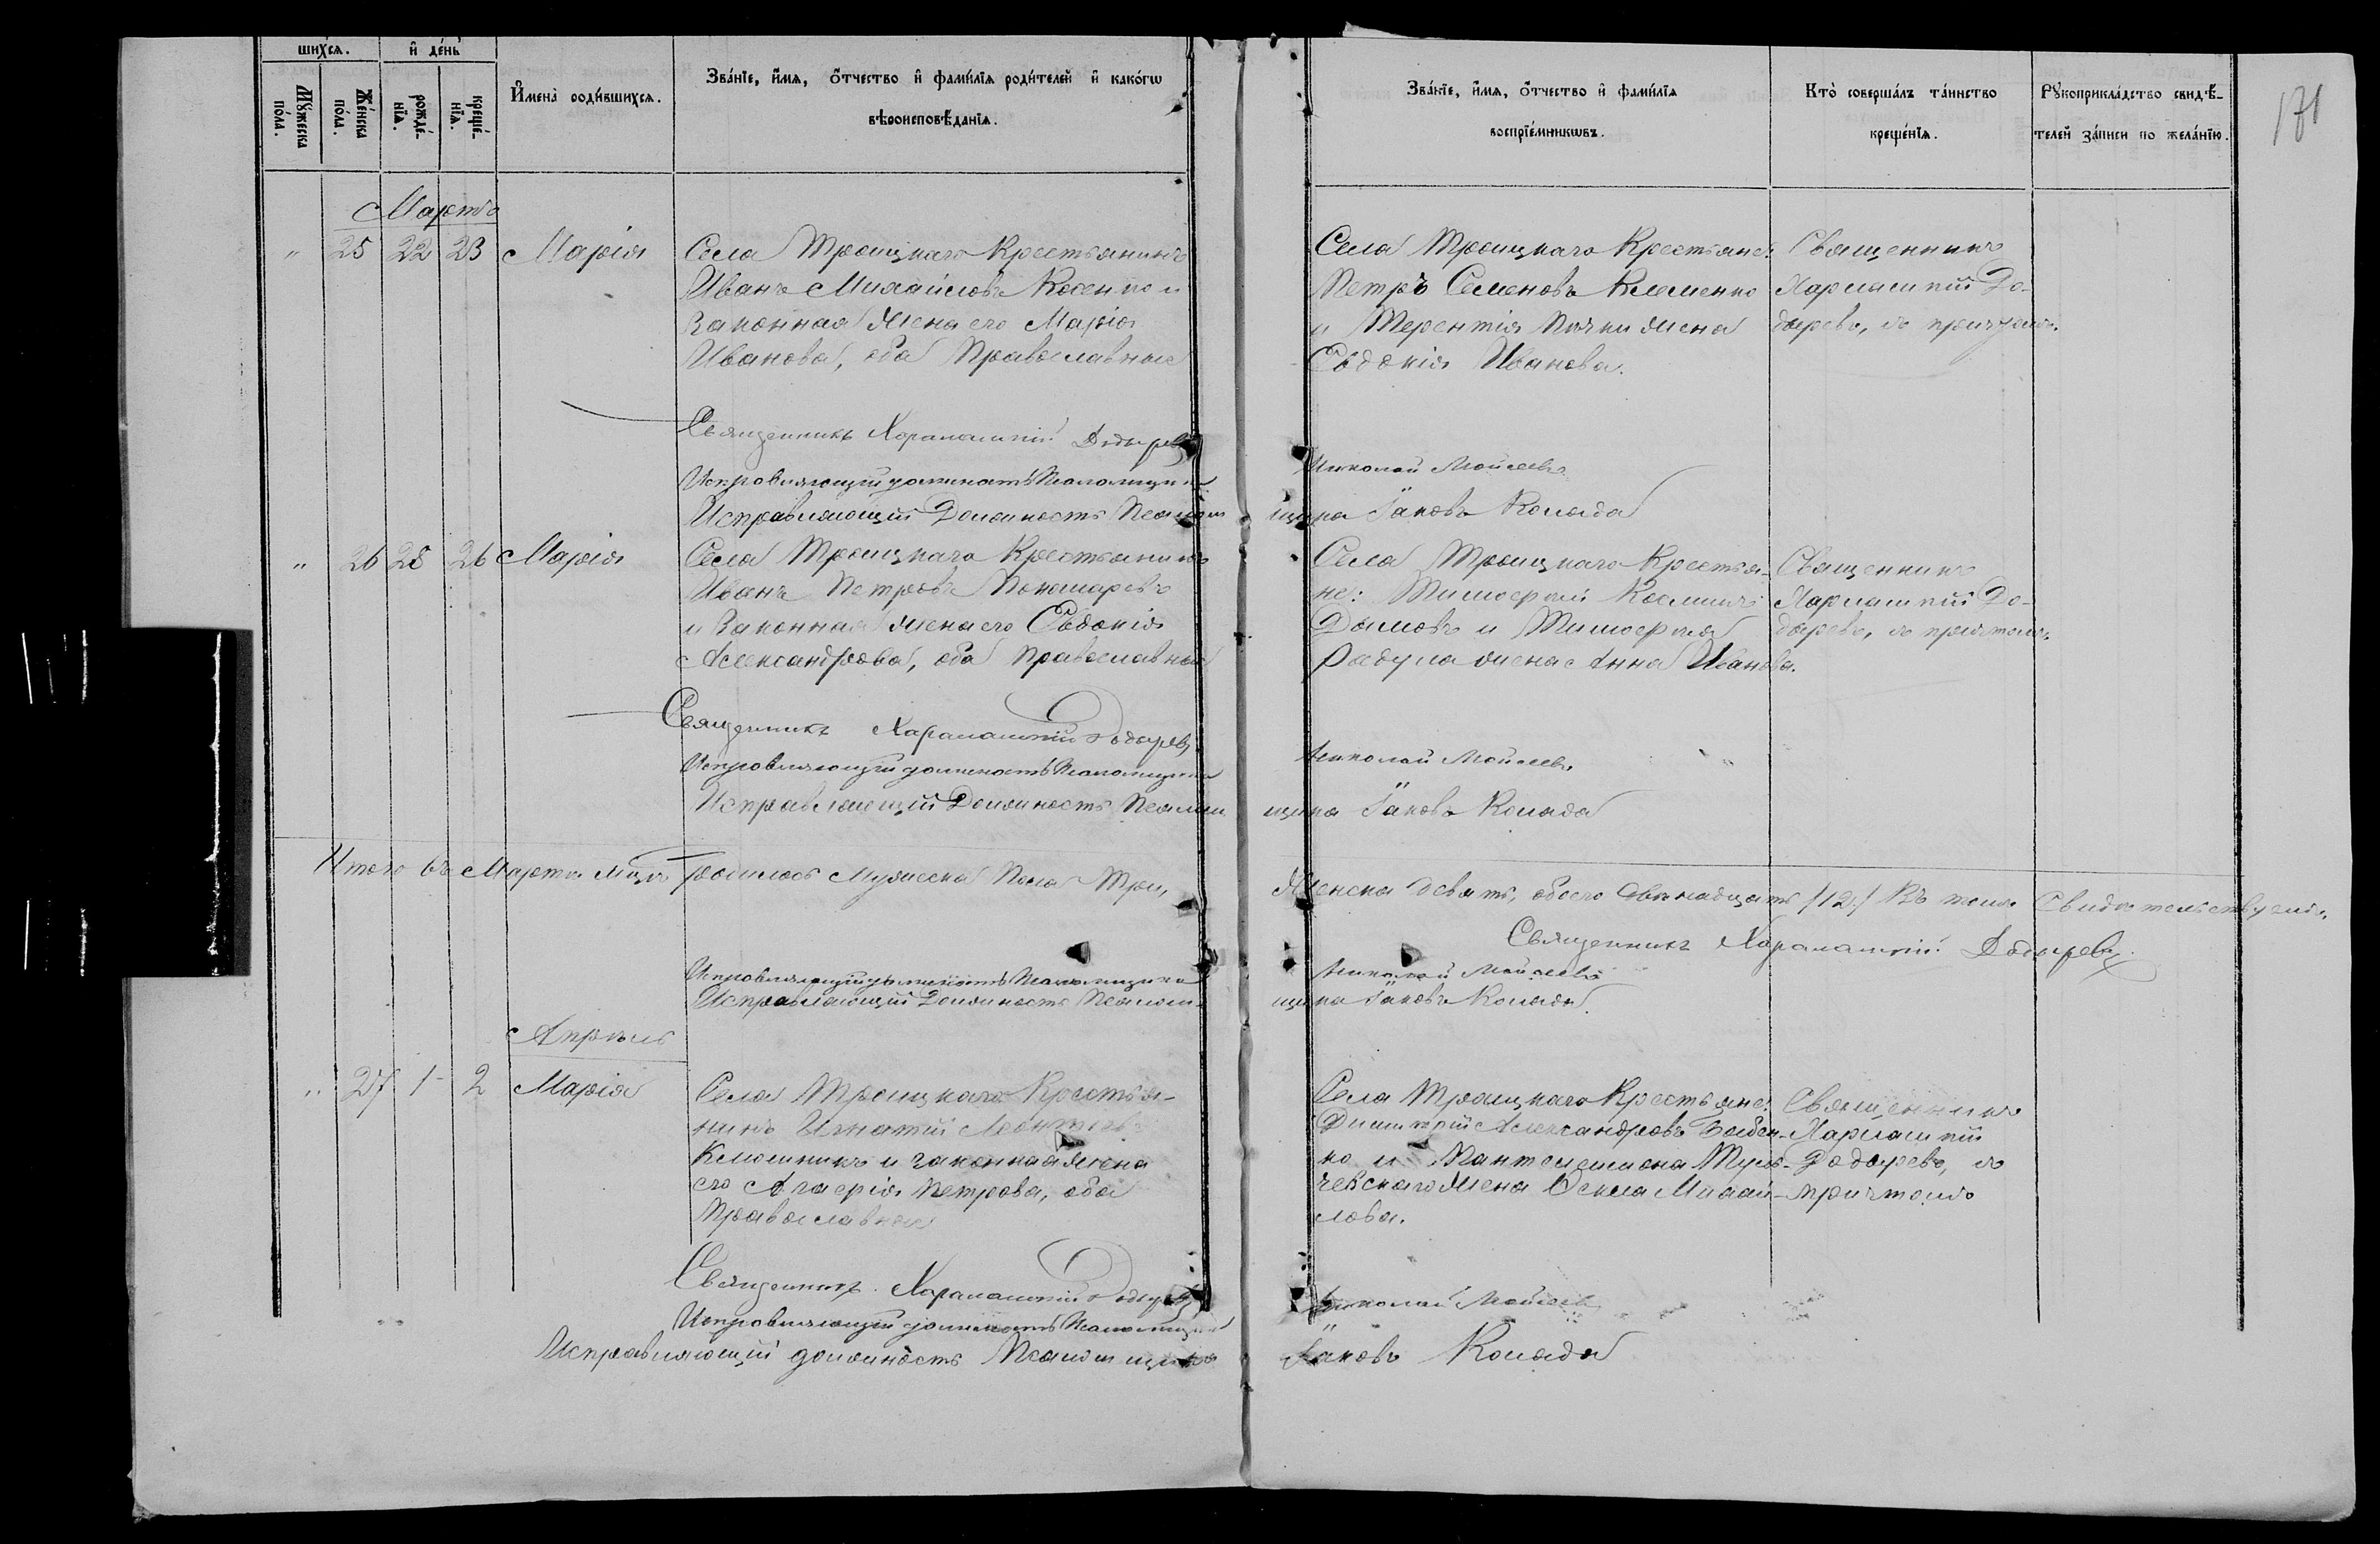 шихсѧ.
и҆ де́нь
Мꙋ́жеска по́ла.
Же́нска по́ла.
рожде́-нїѧ.
креще́-нїѧ.
И҆мена̀ роди́вшихсѧ.
Зва́нїе, и҆́мѧ, ѻ҆́тчество и҆ фами́лїѧ роди́телей и҆ како́гѡ
вѣроисповѣ́данїѧ.
Зва́нїе, и҆́мѧ, ѻ҆́тчество и҆ фами́лїѧ
воспрїе́мникѡвъ.
Кто̀ соверша́лъ та́инство
креще́нїѧ.
Рꙋкоприкла́дство свидѣ́-
телей за́писи по жела́нїю.
171
Мартъ
" 25 22 23 Марія
Села Троицкаго Крестьянинъ
Иванъ Михайловъ Косенко и
Законная жена его Марія
Иванова, оба Православные
Села Троицкаго Крестьяне:
Петръ Семеновъ Клеменко
и Терентія жена
Евдокія Иванова.
Священникъ
Харлампій До-
дыревъ, съ причтомъ.
Священникъ Харалампій Додыревъ
Исправляющій должность Псаломщика Николай Мойсеевъ
Исправляющій Должность Псаломщика Іаковъ Коляда
" 26 25 26 Марія
Села Троицкаго Крестьянинъ
Иванъ Петровъ Пономаревъ
и Законная жена его Евдокія
Александрова, оба Православные
Села Троицкаго Крестья-
не: Тимофей Косминъ
Дымовъ и Тимофея
Радула жена Анна Иванова.
Священникъ
Харлампій До-
дыревъ, съ причтомъ.
Священникъ Харалампій Додыревъ
Исправляющій должность Псаломщика Николай Мойсеевъ
Исправляющій Должность Псаломщика Іаковъ Коляда
Итого въ Мартѣ Мцѣ родилось Мужеска Пола Три, Женска девять, обоего двѣнадцать /12/ Въ томъ Свидѣтельствуемъ.
Священникъ Харалампій Додыревъ.
Исправляющій должность Псаломщика Николай Мойсеевъ
Исправляющій Должность Псаломщика Іаковъ Коляда.
Апрѣль
" 27 1 2 Марія
Села Троицкаго Крестья-
нинъ Игнатій Леонтьевъ
Клюшникъ и законная жена
его Агафія Петрова, оба
Православные
Села Троицкаго Крестьяне:
Димитрій Александровъ Бабен-
ко и Пантелеимона Туль-
чевскаго жена Фекла Михай-
лова.
Священникъ
Харлампій
Додыревъ, съ
причтомъ
Священникъ Харалампій Додыревъ
Исправляющій должность Псаломщика Николай Мойсеевъ
Исправляющій должность Псаломщика Іаковъ Коляда